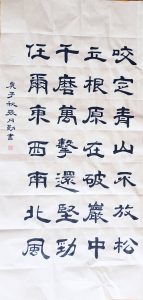 咬定青山不放松
立根原在破巖中
千磨萬擊還堅勁
任爾東西南北風
庚子秋書